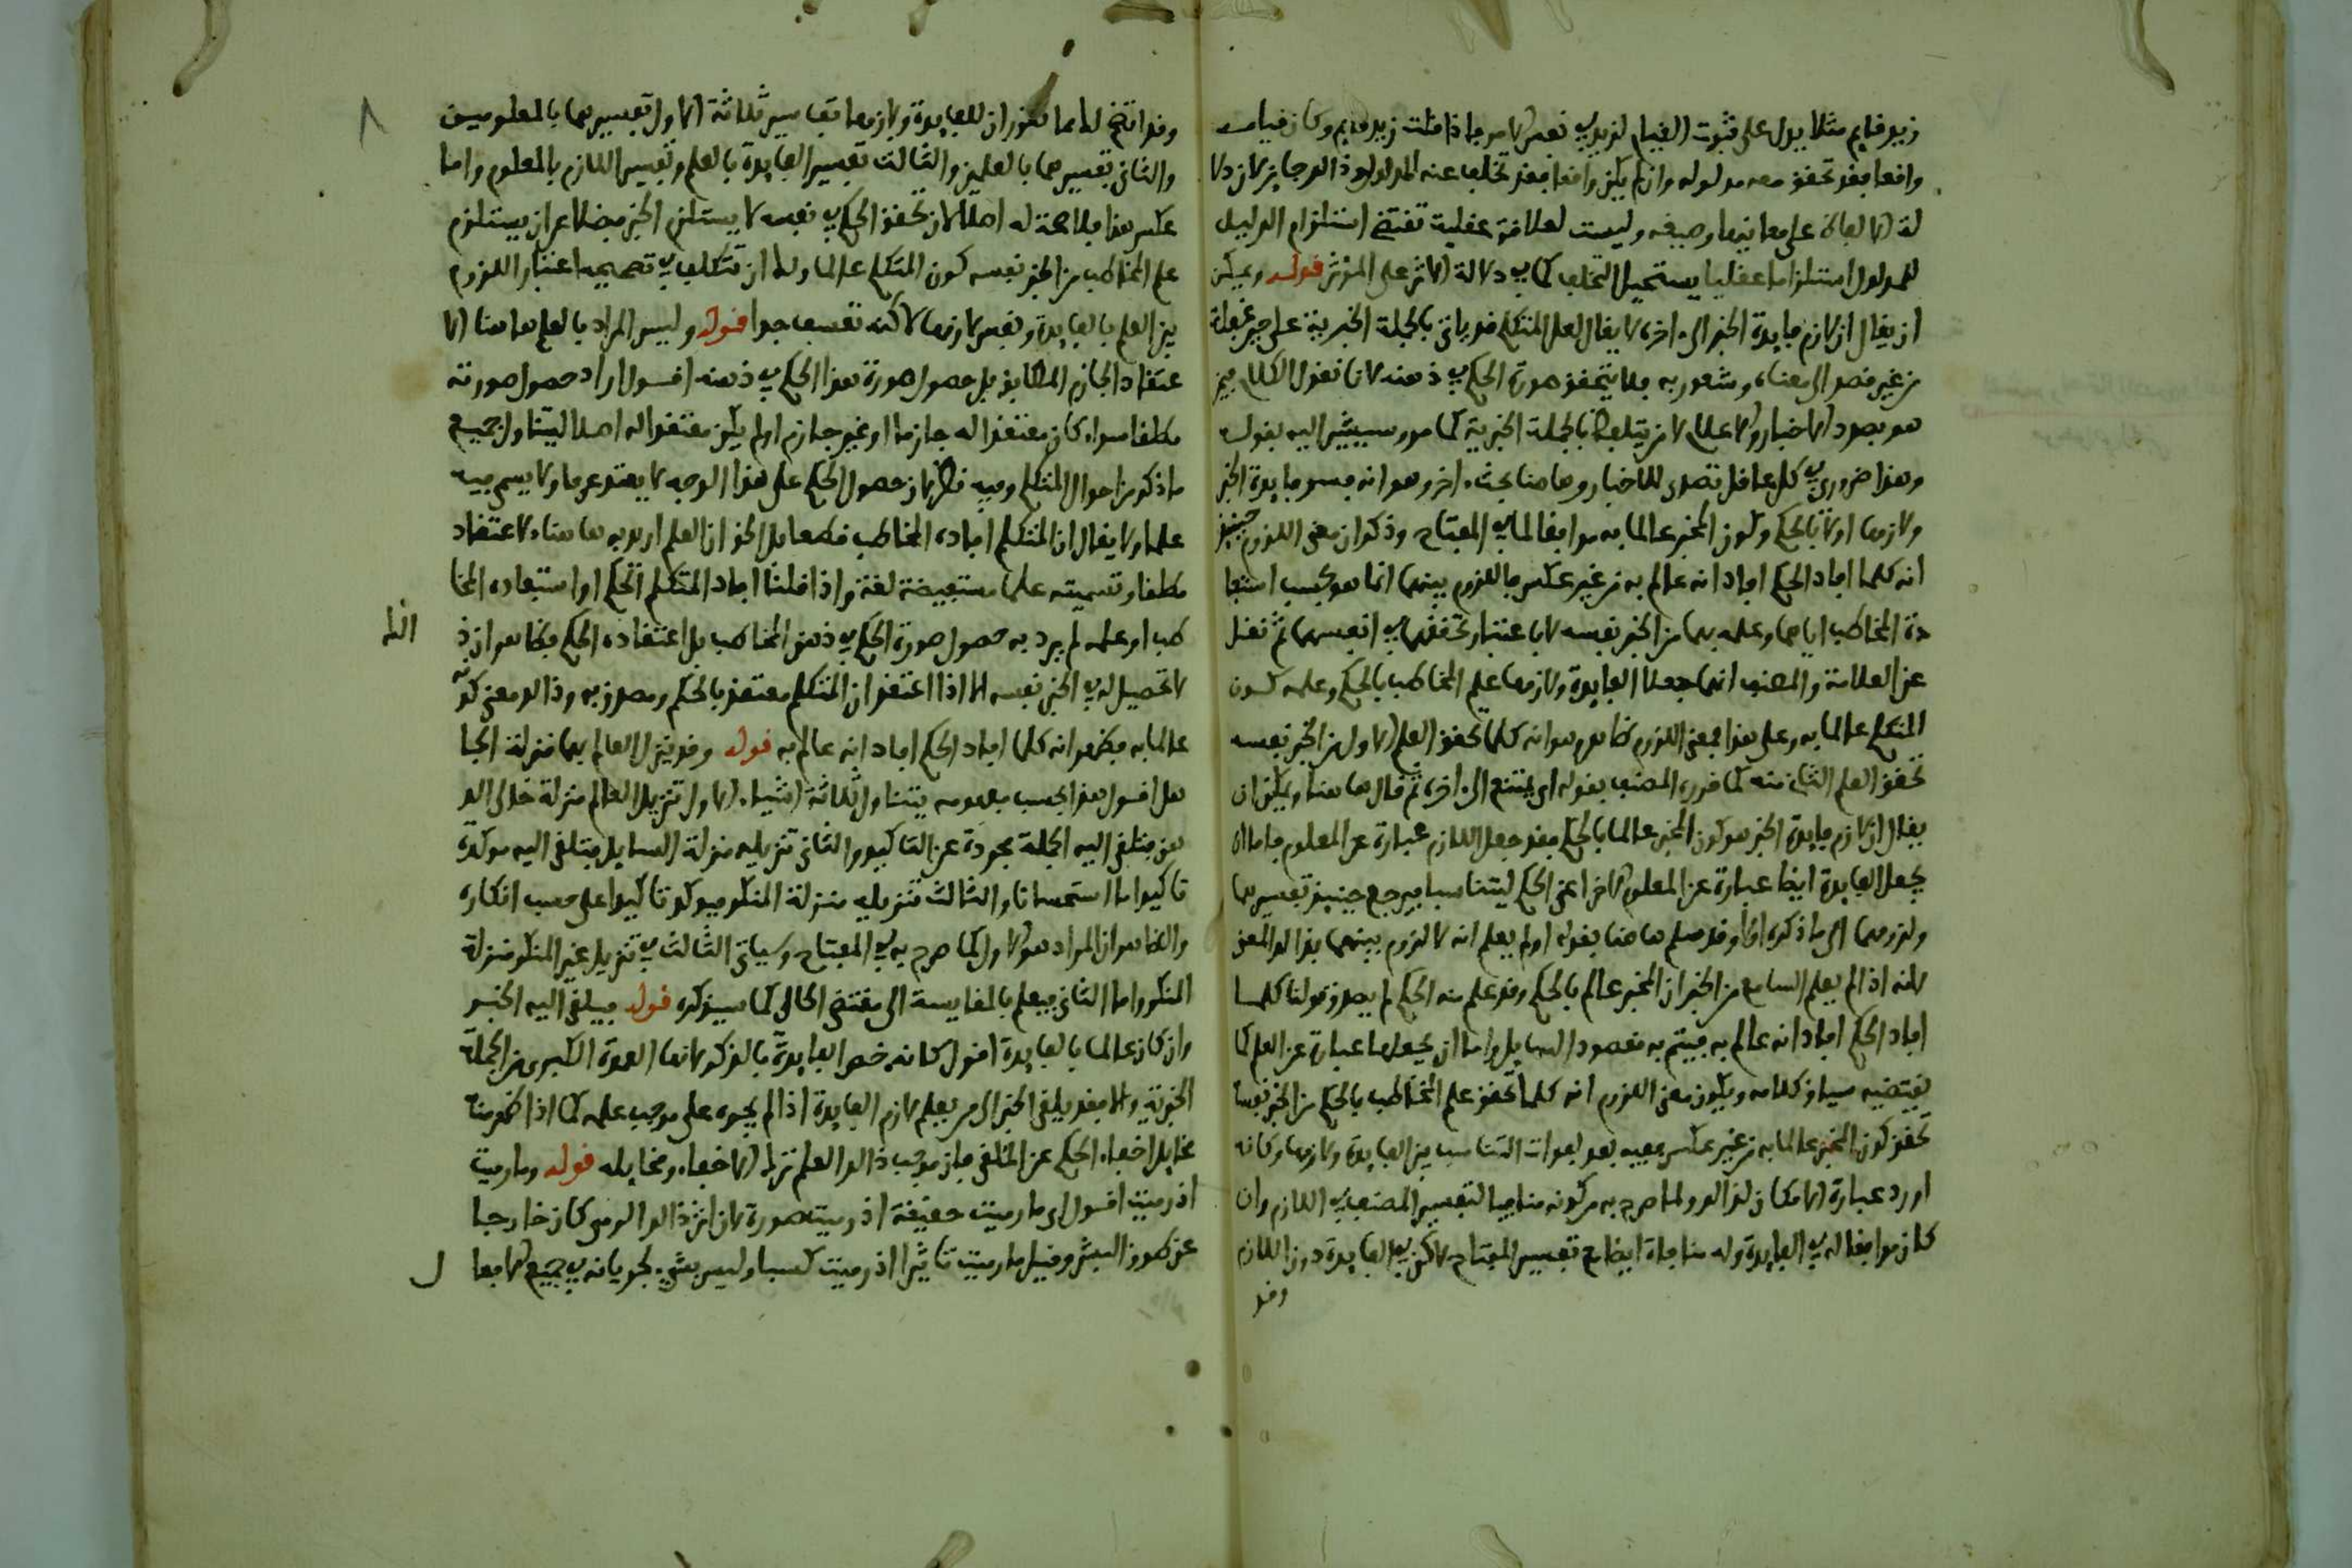 زيد قايم مثلا يدل على ثبوت القيام لزيد في نفس الامر فاذا قلت زيد قايم وكان قيامه
واقعا فقد تحقق معه مدلوله وان لم يكن واقعا فقد تخلف عنه المدلول وذالك جايز لان دلا
لة الالفاظ على معانيها وضعية وليست لعلاقة عقلية تقتضي استلزام الدليل
للمدلول استلزاما عقليا يستحيل التخلف كما في دلالة الاثر على المؤثر قوله ويمكن
ان يقال ان لازم فايدة الخبر الى اخره لا يقال لعل المتكلم قد ياتي بالجملة الخبرية على حين غفلة
من غير قصد الى معناه وشعور به فلا يتحقق صورة الحكم في ذهنه لانا نقول الكلام فيمن
هو بصدد الاخبار والاعلام لا من يتلفظ بالجملة الخبرية كما مر وسيشير اليه بقوله
وهذا ضروري في كل عاقل تصدى للاخبار وها هنا بحث اخر وهو انه فسر فايدة الخبر
ولازمها اولا بالحكم وكون المخبر عالما به موافقا لما في المفتاح وذكر ان معنى اللزوم حينيذ
انه كلما افاد الحكم افاد انه عالم به من غير عكس فاللزوم بينهما انما هو بحسب استفا
دة المخاطب اياهما وعلمه بهما من الخبر نفسه لا باعتبار تحققهما في انفسهما ثم نقل
عن العلامة والمصنف انهما جعلا الفايدة ولازمها علم المخاطب بالحكم وعلمه كون
المتكلم عالما به وعلى هذا فمعنى اللزوم ظاهر وهو انه كلما تحقق العلم الاول من الخبر نفسه
تحقق العلم الثاني منه كما قرره المصنف بقوله اي يمتنع الى اخره ثم قال ها هنا ويمكن ان
يقال ان لازم فايدة الخبر هو كون المخبر عالما بالحكم فقد جعل اللازم عبارة عن المعلوم فاما ان
يجعل الفايدة ايضا عبارة عن المعلوم الاخر اعني الحكم ليتناسبا فيرجع حينيذ تفسيرهما
ولزومهما الى ما ذكره اولا وقد سلم ها هنا بقوله اولم يعلم انه لا لزوم بينهما بذالك المعنى
لانه اذا لم يعلم السامع من الخبر ان المخبر عالم بالحكم وقد علم منه الحكم لم يصدق قولنا كلما
افاد الحكم افاد انه عالم به فيتم به مقصود السايل واما ان يجعلها عبارة عن العلم كما
يقتضيه سياق كلامه ويكون معنى اللزوم انه كلما تحقق علم المخاطب بالحكم من الخبر نفسه
تحقق كون المخبر عالما به من غير عكس ففيه بعد لفوات التناسب بين الفايدة ولازمها وكانه
اورد عبارة الامكان لذالك ولما صرح به من كونه منافيا لتفسير المصنف في اللازم وان
كان موافقا له في الفايدة وله منافاة ايضا مع تفسير المفتاح لاكن في الفايدة دون اللازم
وقد
وقد اتضح لك مما تقرر ان للفايدة ولازمها تفاسير ثلاثة الاول تفسيرهما بالمعلومين
والثاني تفسيرهما بالعلمين والثالث تفسير الفايدة بالعلم وتفسير اللازم بالمعلوم واما
عكس هذا فلا صحة له اصلا لان تحقق الحكم في نفسه لا يستلزم الخبر فضلا عن ان يستلزم
علم المخاطب من الخبر نفسه كون المتكلم عالما ولك ان تتكلف في تصحيحه اعتبار اللزوم
بين العلم بالفايدة ونفس لازمها لاكنه تعسف جدا قوله وليس المراد بالعلم ها هنا الا
عتقاد الجازم المطابق بل حصول صورة هذا الحكم في ذهنه اقول اراد حصول صورته
مطلقا سواء كان معتقدا له جازما او غير جازم اولم يكن معتقدا له اصلا ليتناول جميع
ما ذكر من احوال المتكلم وفيه نظر لان حصول الحكم على هذا الوجه لا يعتد عرفا ولا يسمى فيه
علما ولا يقال ان المتكلم افاده المخاطب قطعا بل الحق ان العلم اريد به ها هنا الاعتقاد
مطلقا وتسميته علما مستفيضة لغة واذا قلنا افاد المتكلم الحكم او استفاده المخا
طب او علمه لم يرد به حصول صورة الحكم في ذهن المخاطب بل اعتقاده الحكم فظاهر ان ذ
لا تحصيل له في الخبر نفسه الا اذا اعتقد ان المتكلم معتقد بالحكم ومصدق به وذالك معنى كونه
عالما به فظهر انه كلما افاد الحكم افاد انه عالم به قوله وقد ينزل العالم بهما منزلة الجا
هل اقول هذا بحسب مفهومه يتناول ثلاثة اشياء الاول تنزيل العالم منزلة خالي الذ
هن فيلقى اليه الجملة مجردة عن التاكيد والثاني تنزيله منزلة السايل فيلقى اليه موكدة
تاكيدا ما استحسانا والثالث تنزيله منزلة المنكر فيوكد تاكيدا على حسب انكاره
والظاهر ان المراد هو الاول كما صرح به في المفتاح وسياتي الثالث في تنزيل غير المنكر منزلة
المنكر واما الثاني فيعلم بالمقايسة الى مقتضى الحال كما سيذكره قوله فيلقى اليه الخبر
وان كان عالما بالفايدة اقول كانه خص الفايدة بالذكر لانها العمدة الكبرى من الجملة
الخبرية والا فقد يلقى الخبر الى من يعلم لازم الفايدة اذا لم يجره على موجب علمه كما اذا ظهر منه
مخايل اخفاء الحكم عن الملقي فان موجب ذالك العلم ترك الاخفاء ومخايله قوله وما رميت
اذ رميت اقول اي ما رميت حقيقة اذ رميت صورة لان اثر ذالك الرمي كان خارجا
عن طوق البشر وقيل ما رميت تاثيرا اذ رميت كسبا وليس بشيء لجريانه في جميع الافعا
ل